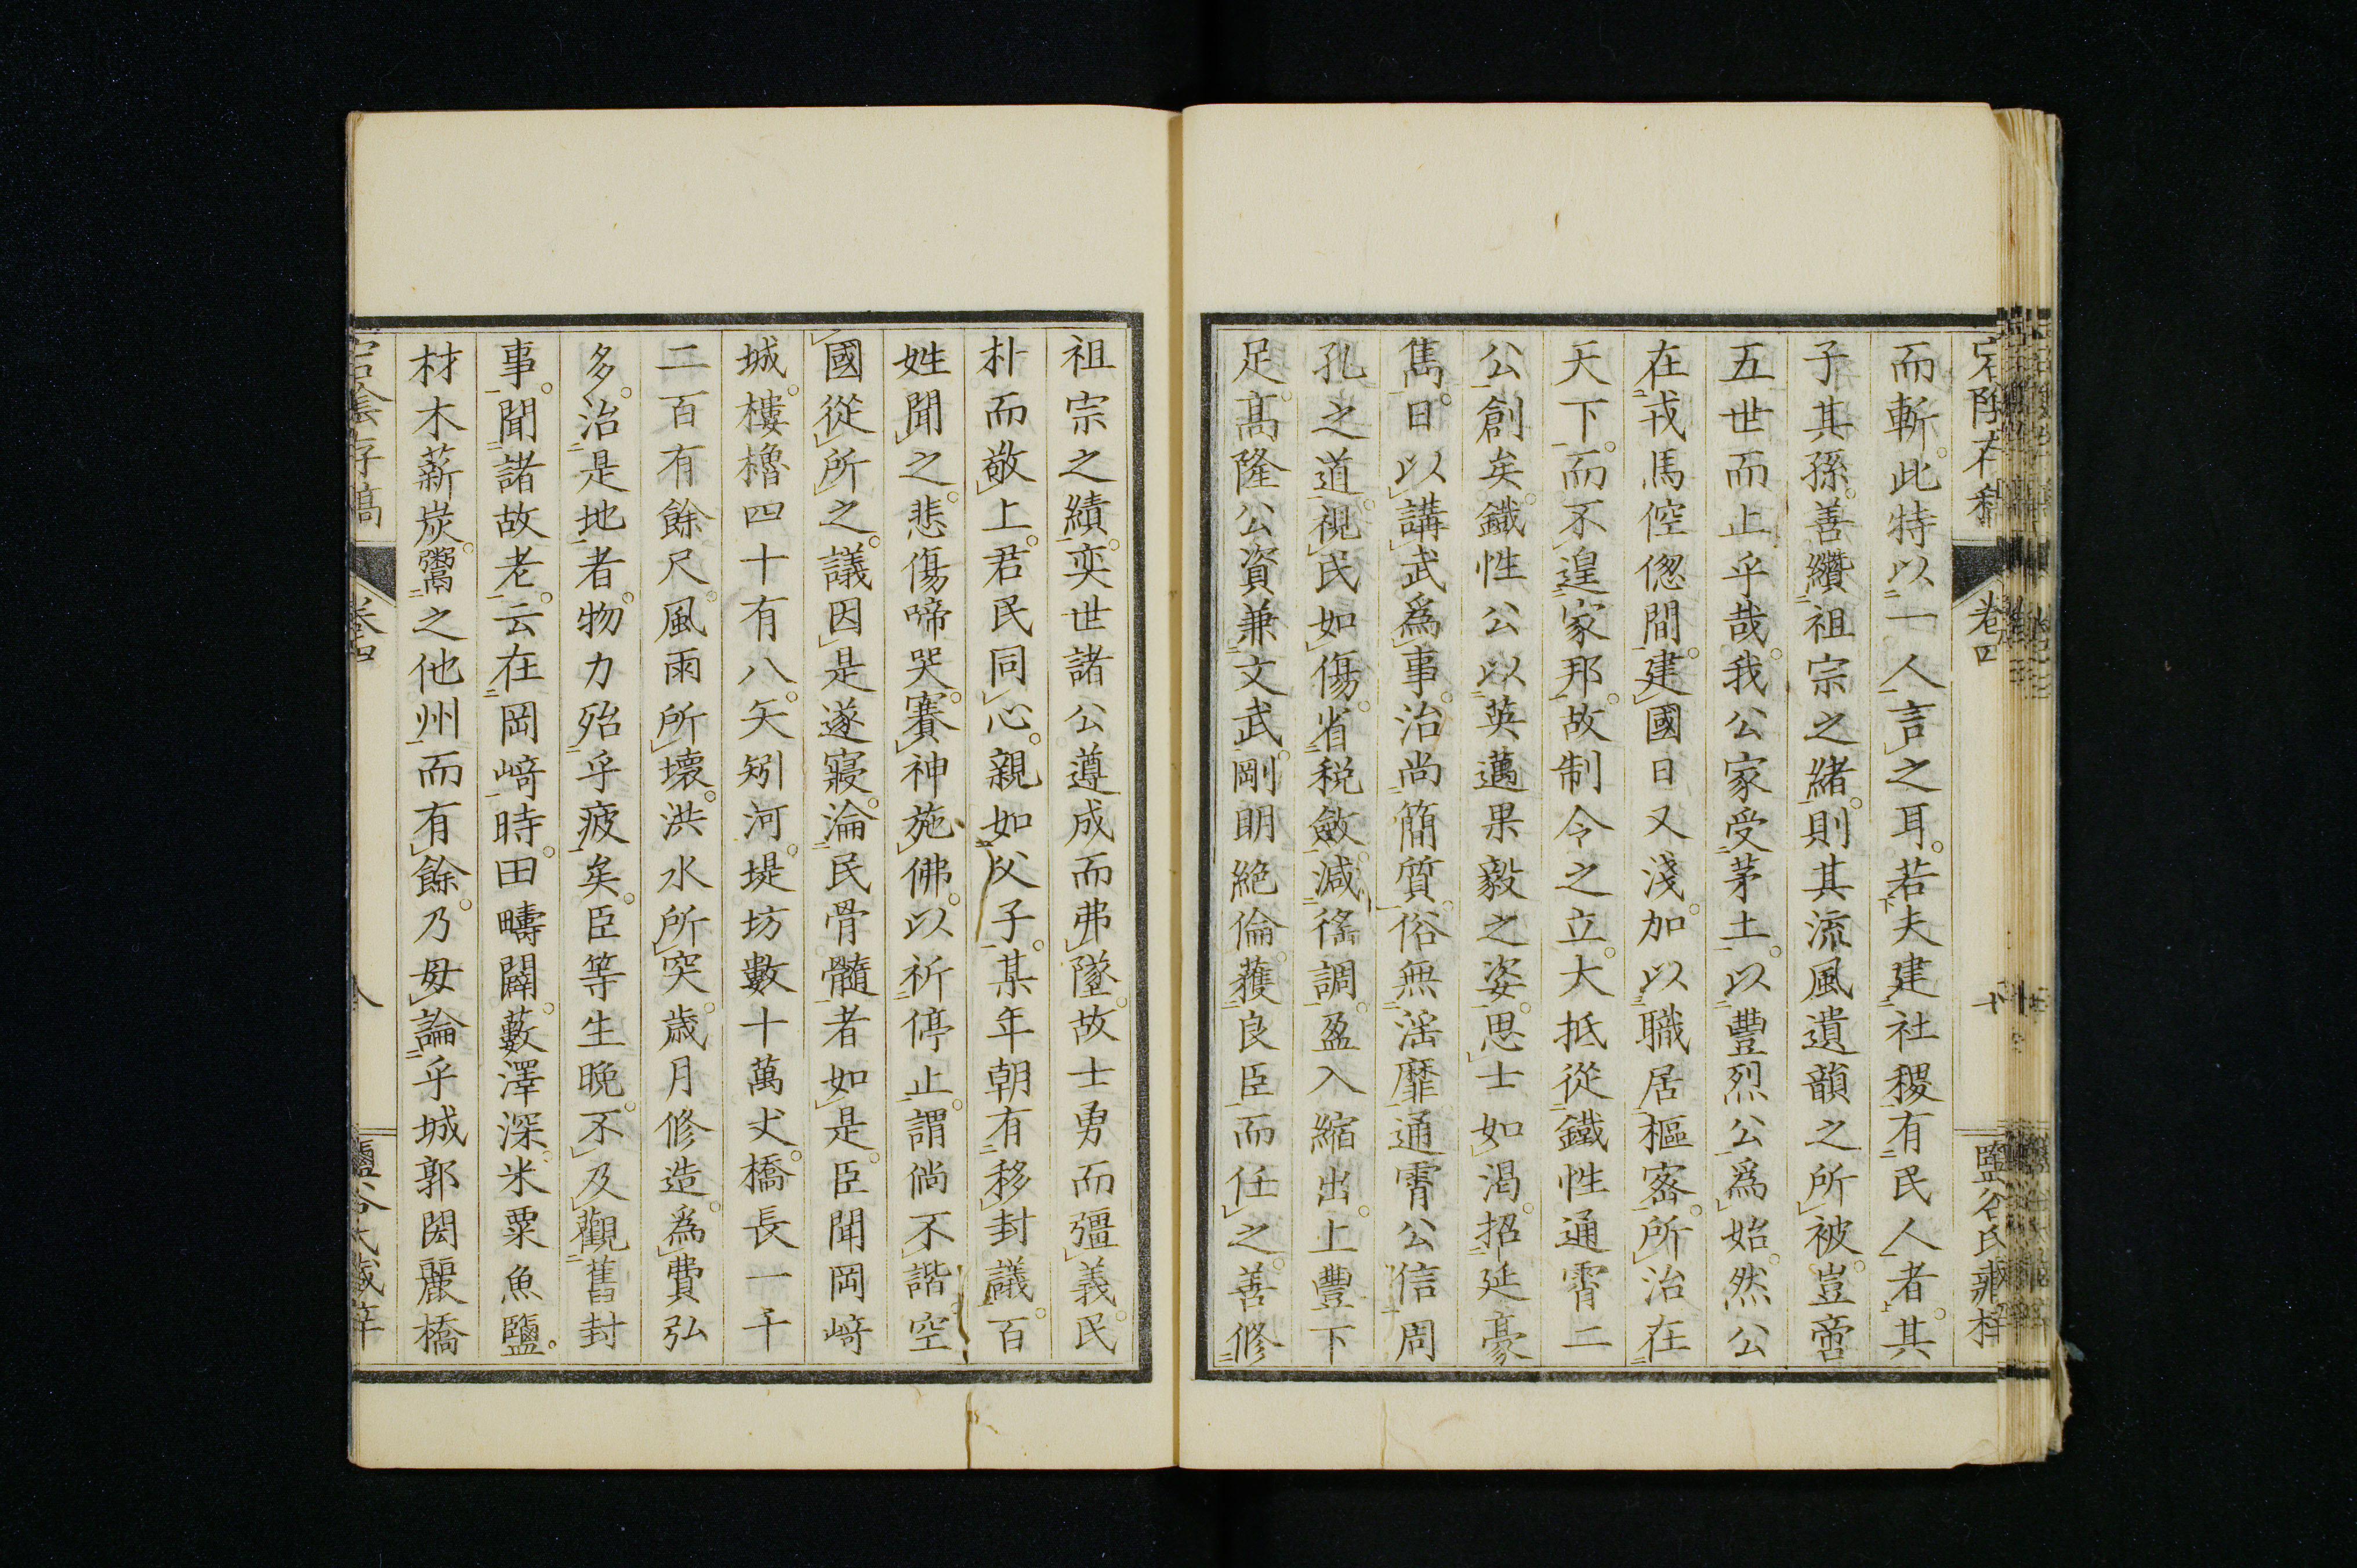 巻四
鹽谷氏藏梓
而斬。此特以一人言之耳。若夫建社稷有民人者。其
子其孫。善纘祖宗之緒。則其流風遺韻之所被。豈啻
五世而止乎哉。我公家受茅土。以豐烈公爲始。然公
在戎馬倥偬間。建國日又淺。加以職居樞密。所治在
天下。而不遑家邦。故制令之立。大抵從鐵性通霄二
公創矣。鐵性公以英邁果毅之姿。思士如渴。招延豪
雋。日以講武爲事。治尚簡質。俗無淫靡。通霄公信周
孔之道。視民如傷。省税斂。減徭調。盈入縮出。上豐下
足。髙隆公資兼文武。剛明絶倫。蒦良臣而任之。善修
祖宗之績。奕世諸公遵成而弗墜。故士勇而彊義。民
朴而敬上。君民同心。親如父子。某年朝有移封議。百
姓聞之。悲傷啼哭。賽神施佛。以祈停止。謂倘不諧。空
國從所之。議因是遂寢。淪民骨髓者如是。臣聞岡﨑
城。樓櫓四十有八。矢矧河。堤坊數十萬丈。橋長一千
二百有餘尺。風雨所壊。洪水所突。歳月修造。爲費弘
多。治是地者。物力殆乎疲矣。臣等生晩。不及觀舊封
事。聞諸故老。云在岡﨑時。田疇闢。藪澤深。米粟魚鹽。
材木薪炭。鬻之他州而有餘。乃毋論乎城郭閎麗橋
宕陰存稿
巻四
鹽谷氏藏梓